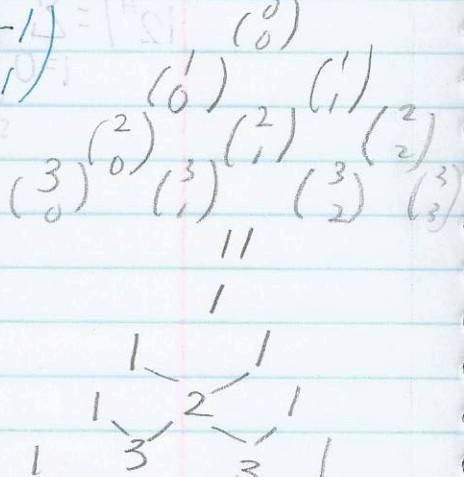 -1)
1)
(0 0)
(1 0) (1 1)
(2 0) (2 1) (2 2)
(3 0) (3 1) (3 2) (3 3)
||
1
1 1
1 2 1
1 3 3 1